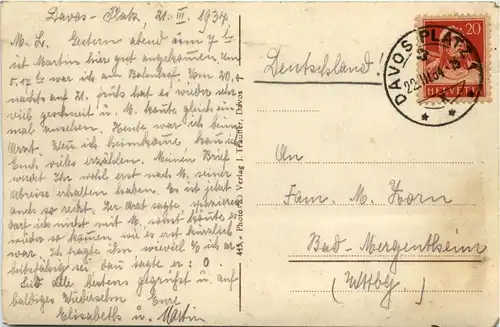 Davos-Platz, 21. III. 1934
M. L. Gestern abend um 7 h
ist Martin hier gut angekommen. Um
5.17 h war ich am Bahnhof. Vom 20.
nachts auf 21. früh hat es wieder sehr
viel geschneit u. M. konnte gleich ein-
mal Heute war ich beim
Arzt. Wenn ich heimkomme kann ich
Euch vieles erzählen. Meinen Brief
werdet Ihr wohl erst nach M. seiner
Abreise erhalten haben. Es ist jetzt
auch so recht. Der Arzt sagte spazieren
darf ich nicht mit M. sonst könnte es
wieder so kommen wie es erst kürzlich
war. Ich fragte ihn wieviel % ich ar-
beitsfähig sei dann sagte er: 0.
Seid alle bestens gegrüsst u. auf
baldiges Wiedersehen Eure
Elisabeth u. Martin
445. Photo und Verlag J. Trauffer, Davos
Deutschland!
An
Fam. M. Horn
Bad-Mergentheim
(Wttbg.)
DAVOS PLATZ
22.III.34
20
HELVETIA